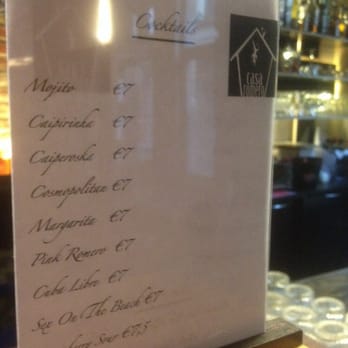 Cocktails
casa
Mojito €7
Caipirinha €7
Caiperoska €7
Cosmopolitan €7
Margarita €7
Pink Romero €7
Cuba Libre €7
Sex On The Beach €7
Sour €7,5